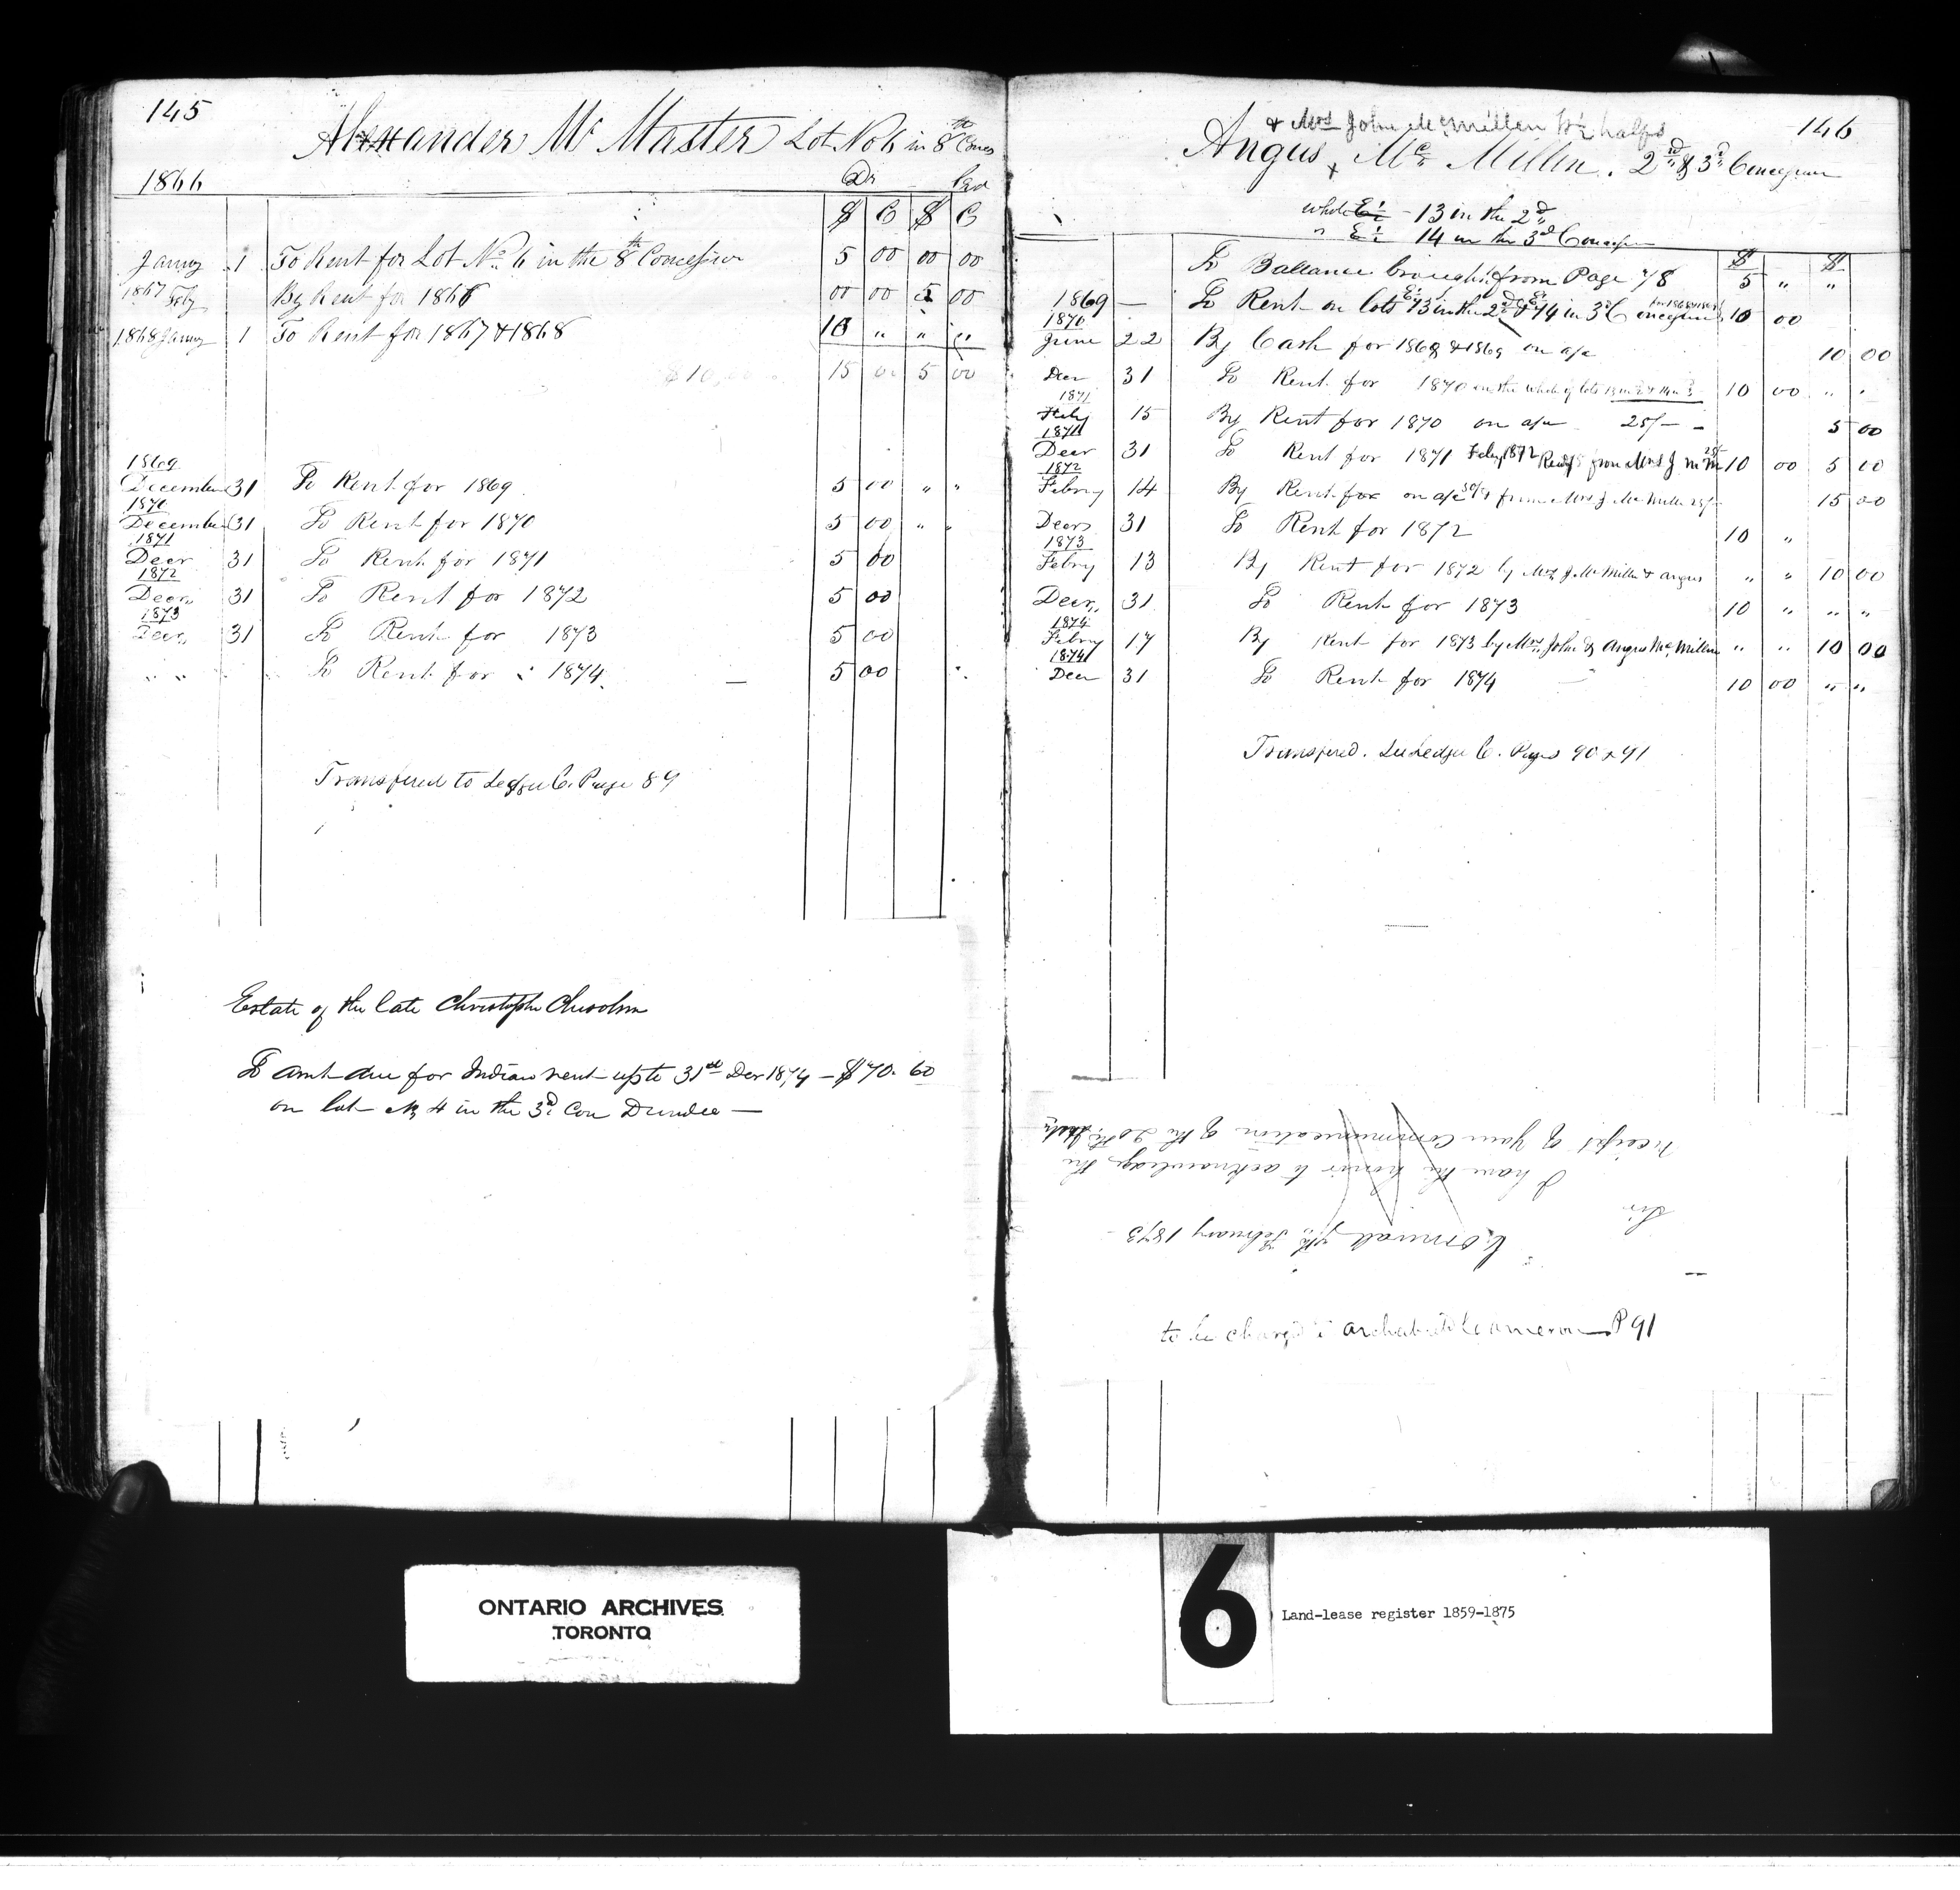 145
Alexander Mc Master Lot No 6 in 8th Conces
1866
Dr
$ C $ C
Janny 1 To Rent for Lot No. 6 in the 8th Concession 5 00 00 00
1867 Feby By Rent for 1866 00 00 5 00
1868 Janny 1 To Rent for 1867 & 1868 10 " " "
$10,00 15 00 5 00
1869
December 31 To Rent for 1869 5 00 " "
1870
December 31 To Rent for 1870 5 00 " "
1871
Decr 31 To Rent for 1871 5 00
1872
Decr,, 31 To Rent for 1872 5 00
1873
Decr,, 31 To Rent for 1873 5 00
" " To Rent for 1874 — 5 00
Transfered to Ledger C. Page 89
Estate of the late Christopher Chisolm
To amt due for Indian rent up to 31st Dec 1874 — $70. 60
on lot No 4 in the 3d Con Dundee —
146
& Mrs John McMillen W 1/2 halfs
Angus Mc Millen. 2nd & 3d Concession
whole E 1/2 - 13 in the 2d
" E 1/2 14 in the 3rd Concession
$ $
To Ballance brought from Page 78 5 " "
1869 — To Rent on lots E 1/2 13 in the 2d & E 1/2 14 in 3d Concession 10 00
1870
June 22 By Cash for 1868 & 1869 on a/c 10 00
Decr 31 To Rent for 1870 on the whole of lots 13 in 2 & 14 in 3 10 00 " "
1871
Feby 15 By Rent for 1870 on a/c 25/- - 5 00
1871
Decr 31 To Rent for 1871 Feby 1872 from Mrs J McM 25/- 10 00 5 00
1872
Febry 14 By Rent for on a/c 50/- & from Mrs J McMillen 25/- 15 00
Decr 31 To Rent for 1872 10 "
1873
Febry 13 By Rent for 1872 by Mrs J. McMillen & Angus " " 10 00
Decr,, 31 To Rent for 1873 10 " " "
1874
Febry 17 By Rent for 1873 by Mrs John & Angus McMillen " " 10 00
1874
Decr 31 To Rent for 1874 10 00 " "
Transfered. See Ledger C. Pages 90 & 91
Cornwall 7th February 1873
Sir
I have the honor to acknowledge the
receipt of your Communication of the 20th
to be charg'd to Archibald Cameron P 91
ONTARIO ARCHIVES
TORONTO
6
Land-lease register 1859-1875